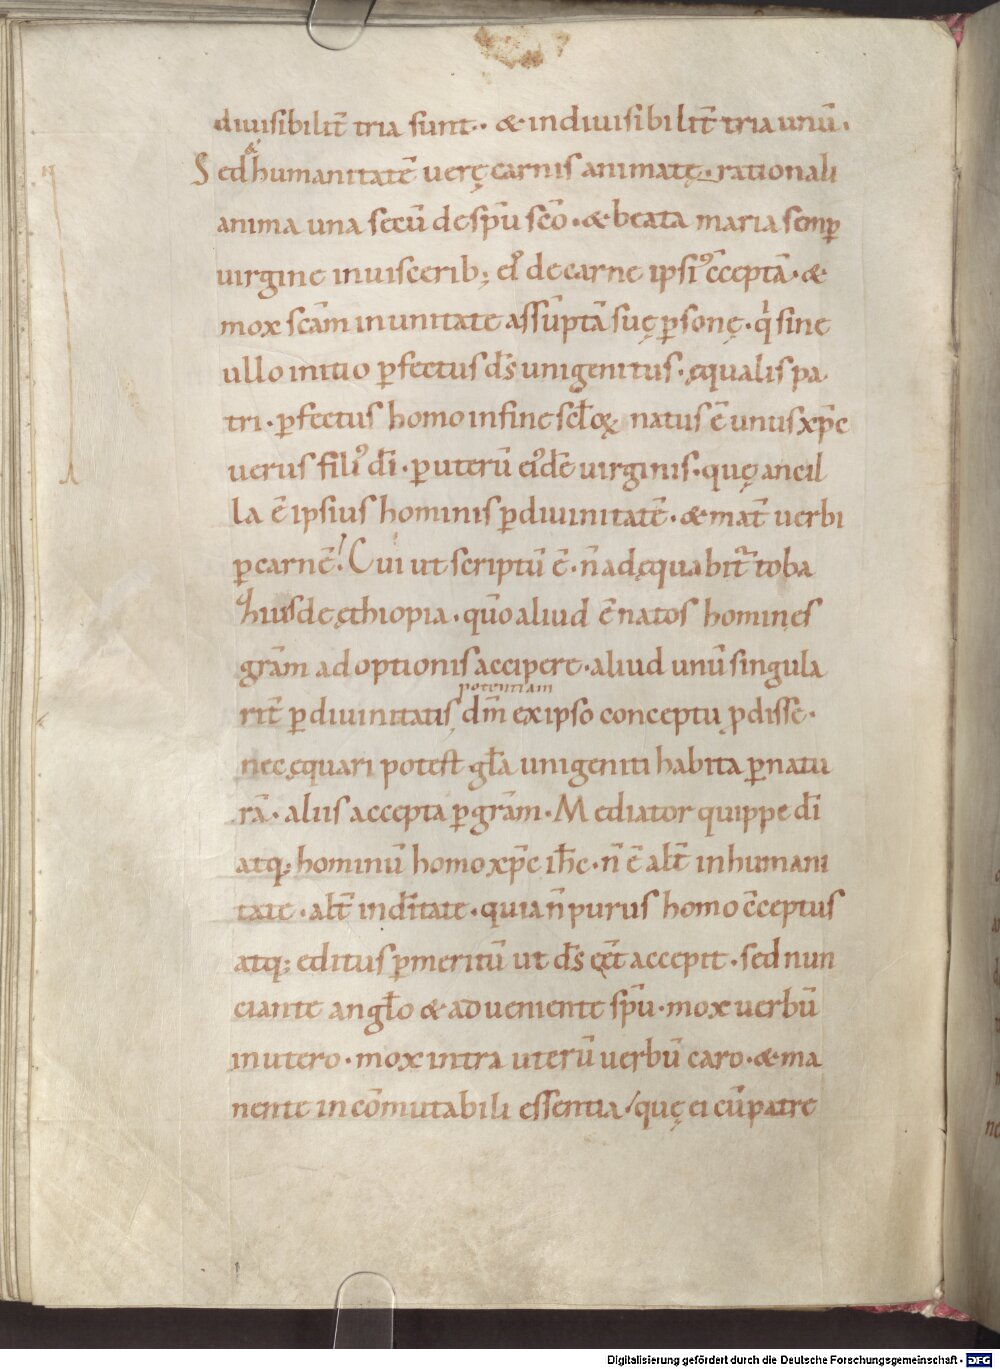 diuisibilit̄ tria sunt·· & indiuisibilit̄ tria unū·
&
Sed humanitatē uerę carnis animatę· rationali
anima una secū de sp̄u sc̄o· & beata maria semꝑ
uirgine in uiscerib; eꝰ de carne ipsiꝰ c̄ceptā· &
mox sc̄am in unitate assūptā suę ꝑsonę· qͥ sine
ullo initio ꝑfectus ds̄ unigenitus· ęqualis pa
tri· ꝑfectus homo in fine sclo̅ꝝ natus ē unus xp̄c
uerus filiꝰ dī· ꝑ uterū eiꝰdē uirginis· quę ancil
la ē ipsius hominis ꝑ diuinitatē· & mat̄ uerbi
ꝑ carnē! Cui ut scriptū ē· n̄ adęquabit̄ toba
zhius de ęthiopia· quō aliud ē natos homines
grām adoptionis accipere· aliud unū singula
potentiam
rit̄ ꝑ diuinitatis dm̄ ex ipso conceptu ꝓdisse·
nec ęquari potest gl̄a unigeniti habita ꝑ natu
rā· aliis accepta ꝑ grām· Mediator quippe dī
atq; hominū homo xp̄c ih̄c· n̄ ē alit̄ in humani
tate· alit̄ in dītate· quia n̄ purus homo c̄ceptus
atq; editus ꝑ meritū ut ds̄ eēt accepit· sed nun
ciante anglo̅ & adueniente sp̄u· mox uerbū
in utero· mox intra uterū uerbū caro· & ma
nente incōmutabili essentia/ quę ei cū patre
Digitalisierung gefördert durch die Deutsche Forschungsgemeinschaft - DFG